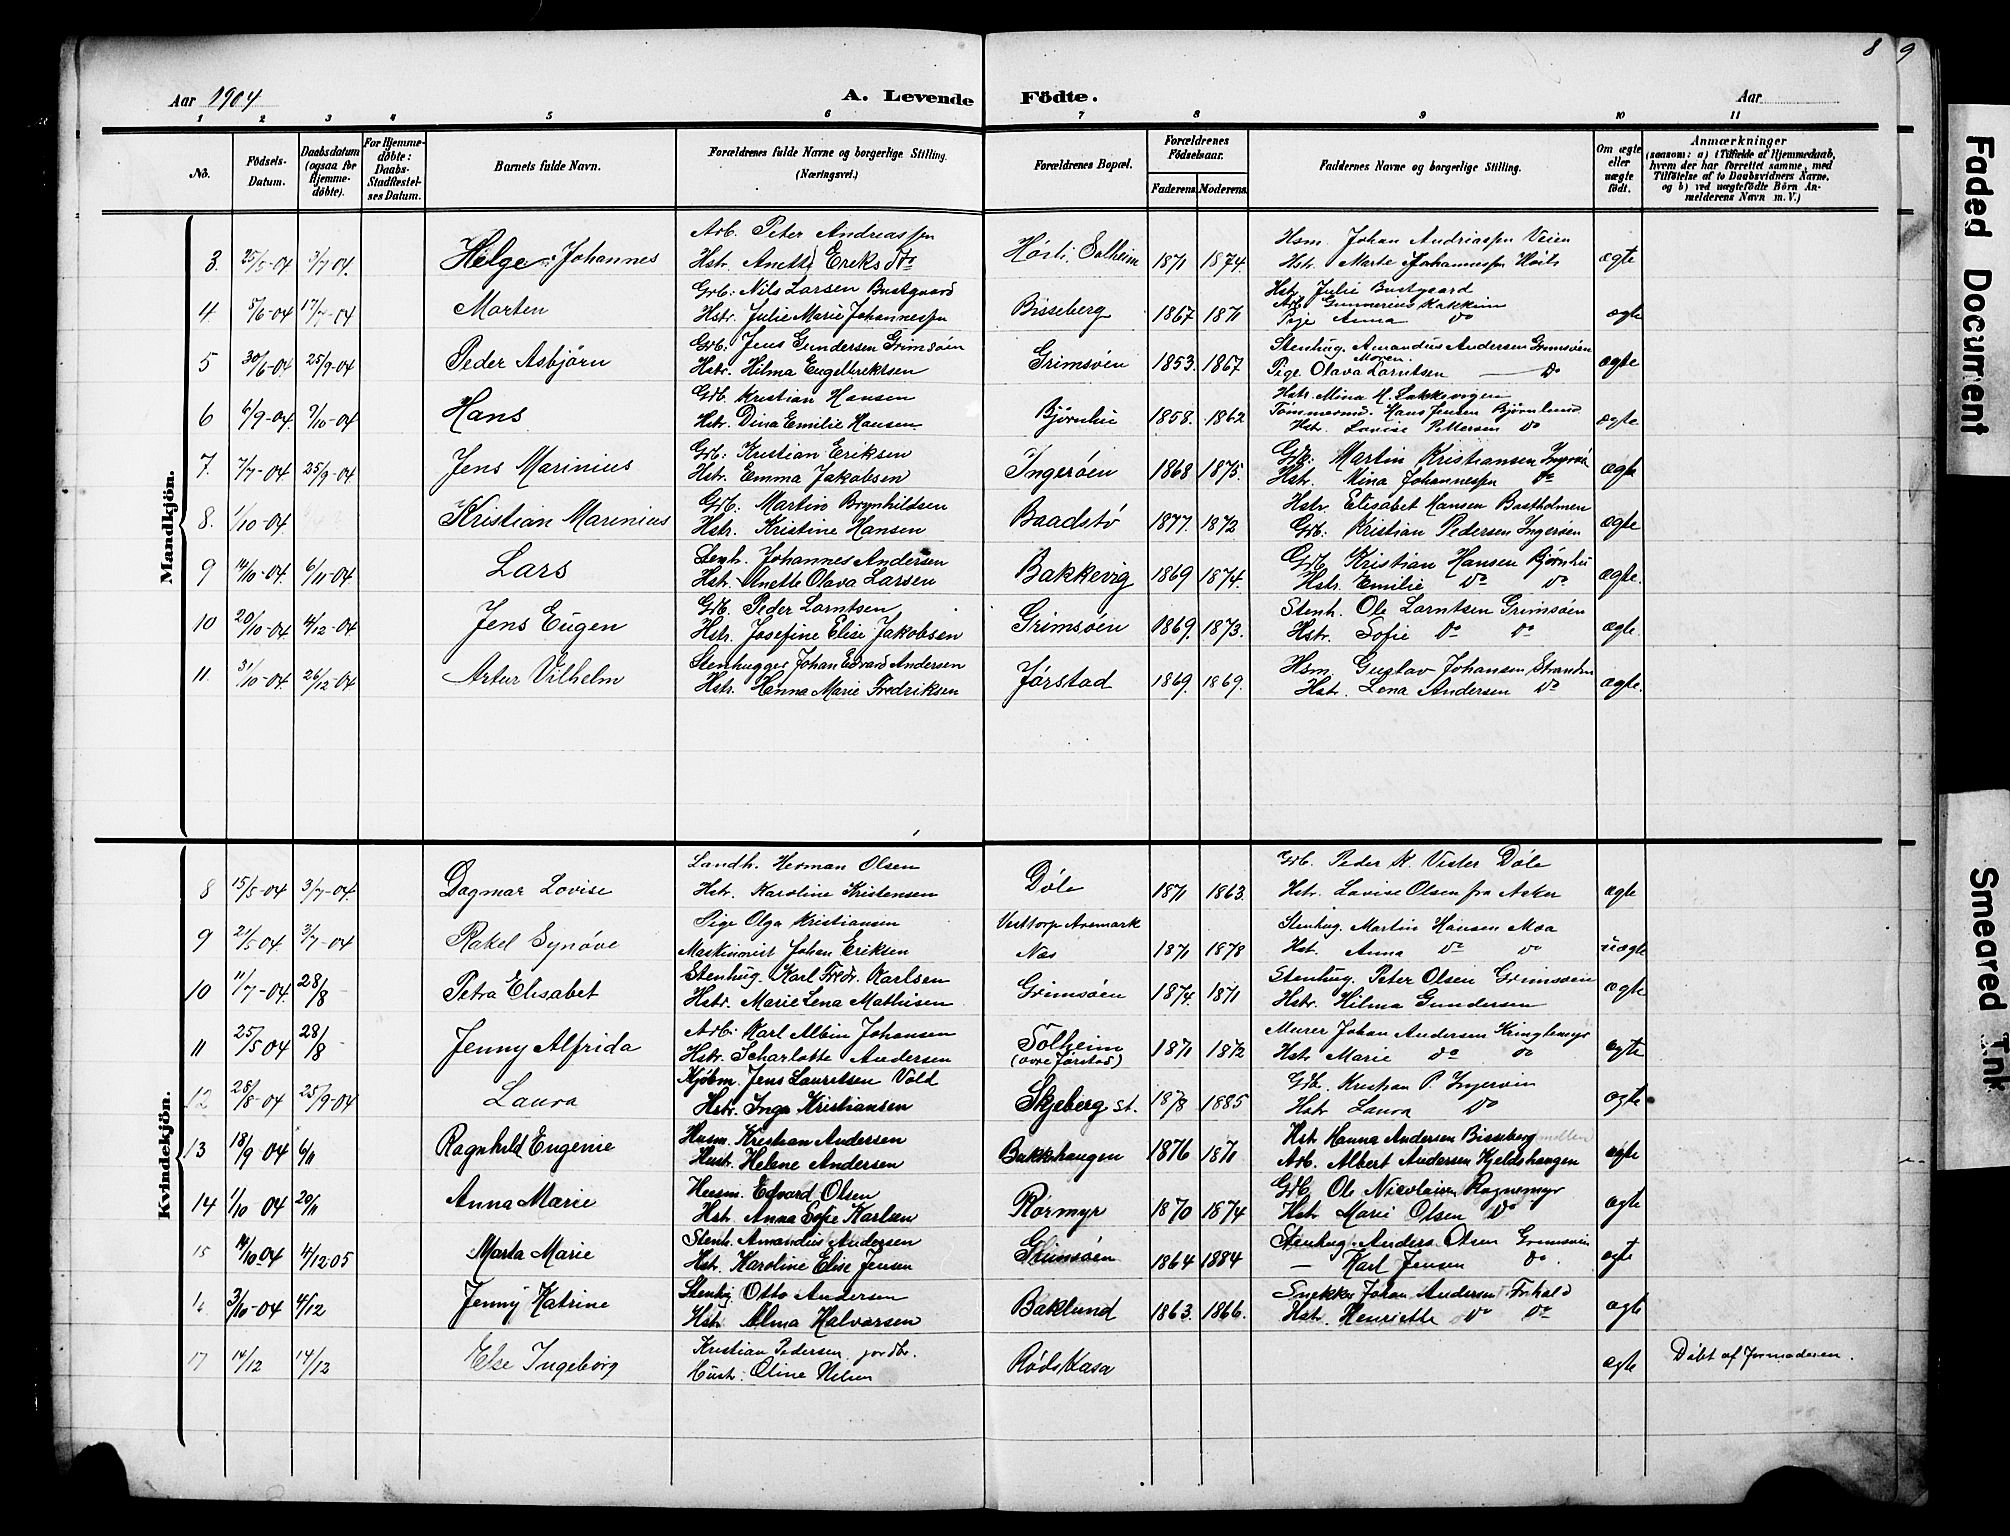 8 9
Aar 1904
A. Levende Födte.
Aar
1 2 3 4 5 6 7 8 9 10 11
No.
Födsels-Datum.
Daabsdatum (ogsaa for Hjemme-döbte).
For Hjemme-döbte: Daabs-Stadfæstel-ses Datum.
Barnets fulde Navn.
Forældrenes fulde Navne og borgerlige Stilling. (Næringsvei.)
Forældrenes Bopæl.
Forældrenes Födselsaar.
Faderens. Moderens.
Faddernes Navne og borgerlige Stilling.
Om ægte eller uægte födt.
Anmærkninger
(saasom: a) i Tilfælde af Hjemmedaab, hvem der har forrettet samme, med Tilföielse af to Daabsvidners Navne, og b) ved uægtefödte Börn Anmelderens Navn m. V.)
Mandkjön.
Arb. Peter Andreassen Hsm. Johan Andreassen Veien
3. 25/5-04 3/7 04. Helge Johannes Hstr. Anette Ereksdtr Høili, Solheim 1871 1874. Hst. Marte Johannessen Høili ægte
Grb: Nils Larsen Bustgaard Hstr. Julie Bustgaard
4. 5/6-04 17/7-04 Morten Hstr. Julie Marie Johannessen Bisseberg 1867 1871 Arb. Gunnerius Kakkim ægte
Pige Anna do
Grb: Jens Gundersen Grimsöen Stenhug. Amandus Andersen Grimsöen
5 30/6-04 25/9-04 Peder Asbjörn Hstr. Hilma Engelbrektsen Grimsöen 1853. 1867 Moren. ægte
Pige Olava Larntsen — do
Grb. Kristian Hansen Hstr. Mina H. Lakkevigen
6 6/9-04. 9/10-04 Hans Hstr. Dina Emilie Hansen Bjørnlii 1858. 1862 Tømmermd. Hans Jensen Bjørnlund ægte
Hst. Lovise Pettersen do
Grb: Kristian Eriksen Grb: Martin Kristiansen Ingerö
7. 7/7-04 25/9-04 Jens Marinius Hstr. Emma Jakobsen Ingeröen 1868 1875. Hstr. Mina Johannessen do ægte
Grb: Martin Brynhildsen Hstr. Elisabet Hansen Bustholmen
8. 1/10-04. Kristian Marinius Hstr. Kristine Hansen Baadstö 1877. 1872 Grb: Kristian Pedersen Ingerøen ægte
Johannes Andersen Grb. Kristian Hansen Bjørnlii
9 14/10-04. 6/11-04 Lars Hstr. Anette Olava Larsen Bakkevig 1869 1874. Hstr. Emilie do do ægte.
Grb. Peder Larntsen Stenh. Ole Larntsen Grimsöen
10 20/10-04 4/12-04 Jens Eugen Hstr. Josefine Elise Jakobsen Grimsöen 1869. 1873. Hstr. Sofie do do ægte.
Stenhugger Johan Edvard Andersen Hsm. Gustav Johansen Stranden
11. 31/10-04. 26/12-04 Artur Vilhelm Hstr. Hanna Marie Fredriksen Jörstad 1869. 1869. Hst. Lena Andersen do ægte.
Kvindekjön.
Landh. Herman Olsen Grb. Peder K. Vister Döle
8 15/5-04 3/7-04. Dagmar Lovise Hstr. Karoline Kristensen Döle 1871 1863. Hstr. Lovise Olsen fra Asker ægte
Pige Olga Kristiansen Vesttorp Aremark Stenhug. Martin Hansen Moa
9 21/5 04. 3/7-04 Rakel Synöve Maskinmist Johan Eriksen Næs 1871 1878 Hst. Anna do do uægte
Stenhug. Karl Fredr. Karlsen Stenhug. Peter Olsen Grimsöen
10 11/7-04. 28/8- Petra Elisabet Hstr. Marie Lena Mathisen Grimsöen 1874 1871 Hstr. Hilma Gundersen ægte
Arb: Karl Albin Johansen Murer Johan Andersen Kringlemyr
11 25/5 04 28/8 Jenny Alfrida Hstr. Scharlotte Andersen Solheim (övre Jörstad) 1871 1872 Hst. Marie do do ægte
Kjöbm. Jens Lauritsen Vold Grb. Kristian P. Ingeröen
12 28/8-04 25/9-04 Laura Hstr. Inga Kristiansen Skjeberg st. 1878 1885 Hstr Laura do ægte
Husm. Kristian Andersen Hst Hanna Andersen Bisseberg mellen
13 18/9 04 6/11 Ragnhild Eugenie Hustr. Helene Andersen Bakkehaugen 1876 1871 Arb. Albert Andersen Kjeldshaugen ægte
Husm. Edvard Olsen Grb. Ole Nicolaisen Rognemyr
14 1/10 04 20/11 Anna Marie Hst. Anna Sofie Karlsen Rörmyr 1870 1874 Hstr. Marie Olsen do ægte
Stenh. Amandus Andersen Stenhug. Anders Olsen Grimsöen
15 14/10 04 4/12 05 Marta Marie Hst. Karoline Elise Jensen Grimsöen 1864 1884 — Karl Jensen do. ægte
Stenhg. Otto Andersen Snekker Johan Andersen Frhald
16 3/10-04 4/12 Jenny Katrine Hstr. Alma Halvorsen Baklund 1863. 1866. Hst. Henriette do do ægte
Kristian Pedersen, jordbr.
17 14/12 14/12 Else Ingeborg Hust: Oline Nilsen Rödskasa ægte Döbt af Jormoderen.
Faded Document
Smeared Ink